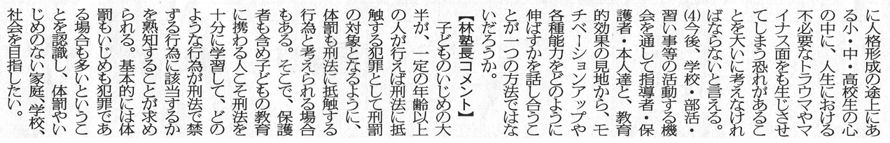 に人格形成の途上にあ
る小・中・高校生の心
の中に、人生における
不必要なトラウマやマ
イナス面をも生じさせ
てしまう恐れがあるこ
とを大いに考えなけれ
ばならないと言える。
⑷今後、学校・部活・
習い事等の活動する機
会を通して指導者・保
護者・本人達と、教育
的効果の見地から、モ
チベーションアップや
各種能力をどのように
伸ばすかを話し合うこ
とが一つの方法ではな
いだろうか。
【林塾長コメント】
子どものいじめの大
半が、一定の年齢以上
の人が行えば刑法に抵
触する犯罪として刑罰
の対象となるように、
体罰も刑法に抵触する
行為と考えられる場合
もある。そこで、保護
者も含め子どもの教育
に携わる人こそ刑法を
十分に学習して、どの
ような行為が刑法で禁
ずる行為に該当するか
を熟知することが求め
られる。基本的には体
罰もいじめも犯罪であ
る場合も多いというこ
とを認識し、体罰やい
じめのない家庭、学校、
社会を目指したい。